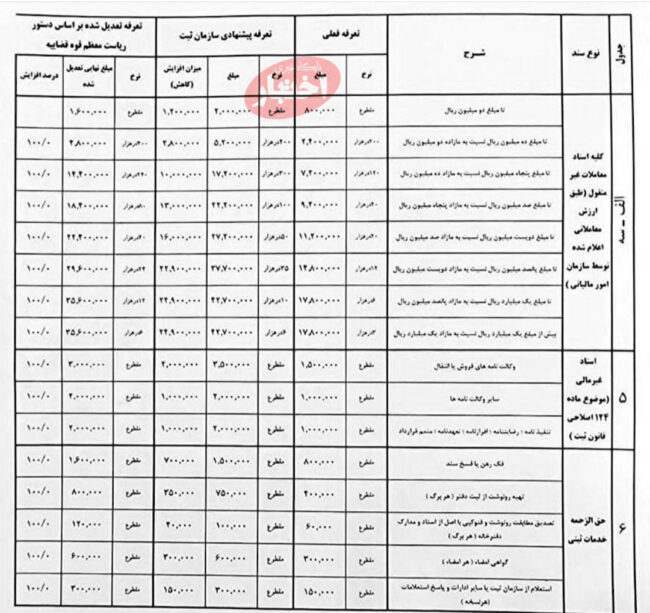 جدول | نوع سند | شرح | تعرفه فعلی | تعرفه پیشنهادی سازمان ثبت | تعرفه تعدیل شده بر اساس دستور ریاست معظم قوه قضاییه
نرخ | مبلغ | نرخ | مبلغ | میزان افزایش (کاهش) | نرخ | مبلغ نهایی تعدیل شده | درصد افزایش
اخبار
الف - سه
کلیه اسناد معاملات غیر منقول (طبق ارزش معاملاتی اعلام شده توسط سازمان امور مالیاتی)
تا مبلغ دو میلیون ریال | مقطوع | ۸۰۰,۰۰۰ | مقطوع | ۲,۰۰۰,۰۰۰ | ۱,۲۰۰,۰۰۰ | مقطوع | ۱,۶۰۰,۰۰۰
تا مبلغ ده میلیون ریال نسبت به مازاد دو میلیون ریال | ۲۰۰درهزار | ۲,۴۰۰,۰۰۰ | ۴۰۰درهزار | ۵,۲۰۰,۰۰۰ | ۲,۸۰۰,۰۰۰ | ۴۰۰درهزار | ۴,۸۰۰,۰۰۰ | ۱۰۰/۰
تا مبلغ پنجاه میلیون ریال نسبت به مازاد ده میلیون ریال | ۱۲۰درهزار | ۷,۲۰۰,۰۰۰ | ۳۰۰درهزار | ۱۷,۲۰۰,۰۰۰ | ۱۰,۰۰۰,۰۰۰ | ۲۴۰درهزار | ۱۴,۴۰۰,۰۰۰ | ۱۰۰/۰
تا مبلغ صد میلیون ریال نسبت به مازاد پنجاه میلیون ریال | ۹,۲۰۰,۰۰۰ | ۱۰۰درهزار | ۲۲,۲۰۰,۰۰۰ | ۱۳,۰۰۰,۰۰۰ | ۱۸,۴۰۰,۰۰۰ | ۱۰۰/۰
تا مبلغ دویست میلیون ریال نسبت به مازاد صد میلیون ریال | ۲۰درهزار | ۱۱,۲۰۰,۰۰۰ | ۵۰درهزار | ۲۷,۲۰۰,۰۰۰ | ۱۶,۰۰۰,۰۰۰ | ۴۰درهزار | ۲۲,۴۰۰,۰۰۰ | ۱۰۰/۰
تا مبلغ پانصد میلیون ریال نسبت به مازاد دویست میلیون ریال | ۱۲درهزار | ۱۴,۸۰۰,۰۰۰ | ۳۵درهزار | ۳۷,۷۰۰,۰۰۰ | ۲۲,۹۰۰,۰۰۰ | ۲۴درهزار | ۲۹,۶۰۰,۰۰۰ | ۱۰۰/۰
تا مبلغ یک میلیارد ریال نسبت به مازاد پانصد میلیون ریال | ۶درهزار | ۱۷,۸۰۰,۰۰۰ | ۱۰درهزار | ۴۲,۷۰۰,۰۰۰ | ۲۴,۹۰۰,۰۰۰ | ۱۲درهزار | ۳۵,۶۰۰,۰۰۰ | ۱۰۰/۰
بیش از مبلغ یک میلیارد ریال نسبت به مازاد یک میلیارد ریال | ۳درهزار | ۱۷,۸۰۰,۰۰۰ | ۶درهزار | ۴۲,۷۰۰,۰۰۰ | ۲۴,۹۰۰,۰۰۰ | ۶درهزار | ۳۵,۶۰۰,۰۰۰ | ۱۰۰/۰
۵
اسناد غیرمالی (موضوع ماده ۱۲۴ اصلاحی قانون ثبت)
وکالت نامه های فروش یا انتقال | مقطوع | ۱,۵۰۰,۰۰۰ | مقطوع | ۳,۵۰۰,۰۰۰ | ۲,۰۰۰,۰۰۰ | مقطوع | ۳,۰۰۰,۰۰۰ | ۱۰۰/۰
سایر وکالت نامه ها | مقطوع | ۱,۰۰۰,۰۰۰ | مقطوع | ۲,۰۰۰,۰۰۰ | ۱,۰۰۰,۰۰۰ | مقطوع | ۲,۰۰۰,۰۰۰ | ۱۰۰/۰
تنفیذ نامه ؛ رضایتنامه ؛ اقرارنامه ؛ تعهدنامه ؛ متمم قرارداد | مقطوع | ۱,۰۰۰,۰۰۰ | مقطوع | ۲,۰۰۰,۰۰۰ | ۱,۰۰۰,۰۰۰ | مقطوع | ۲,۰۰۰,۰۰۰ | ۱۰۰/۰
۶
حق الزحمه خدمات ثبتی
فک رهن یا فسخ سند | مقطوع | ۸۰۰,۰۰۰ | مقطوع | ۱,۵۰۰,۰۰۰ | ۷۰۰,۰۰۰ | مقطوع | ۱,۶۰۰,۰۰۰ | ۱۰۰/۰
تهیه رونوشت از ثبت دفتر (هر برگ) | مقطوع | ۴۰۰,۰۰۰ | مقطوع | ۷۵۰,۰۰۰ | ۳۵۰,۰۰۰ | مقطوع | ۸۰۰,۰۰۰ | ۱۰۰/۰
تصدیق مطابقت رونوشت و فتوکپی با اصل از اسناد و مدارک دفترخانه (هر برگ) | مقطوع | ۶۰,۰۰۰ | مقطوع | ۱۰۰,۰۰۰ | ۴۰,۰۰۰ | مقطوع | ۱۲۰,۰۰۰ | ۱۰۰/۰
گواهی امضاء (هر امضاء) | مقطوع | ۳۰۰,۰۰۰ | مقطوع | ۶۰۰,۰۰۰ | ۳۰۰,۰۰۰ | مقطوع | ۶۰۰,۰۰۰ | ۱۰۰/۰
استعلام از سازمان ثبت یا سایر ادارات و پاسخ استعلامات (هرنسخه) | مقطوع | ۱۵۰,۰۰۰ | مقطوع | ۳۰۰,۰۰۰ | ۱۵۰,۰۰۰ | مقطوع | ۳۰۰,۰۰۰ | ۱۰۰/۰